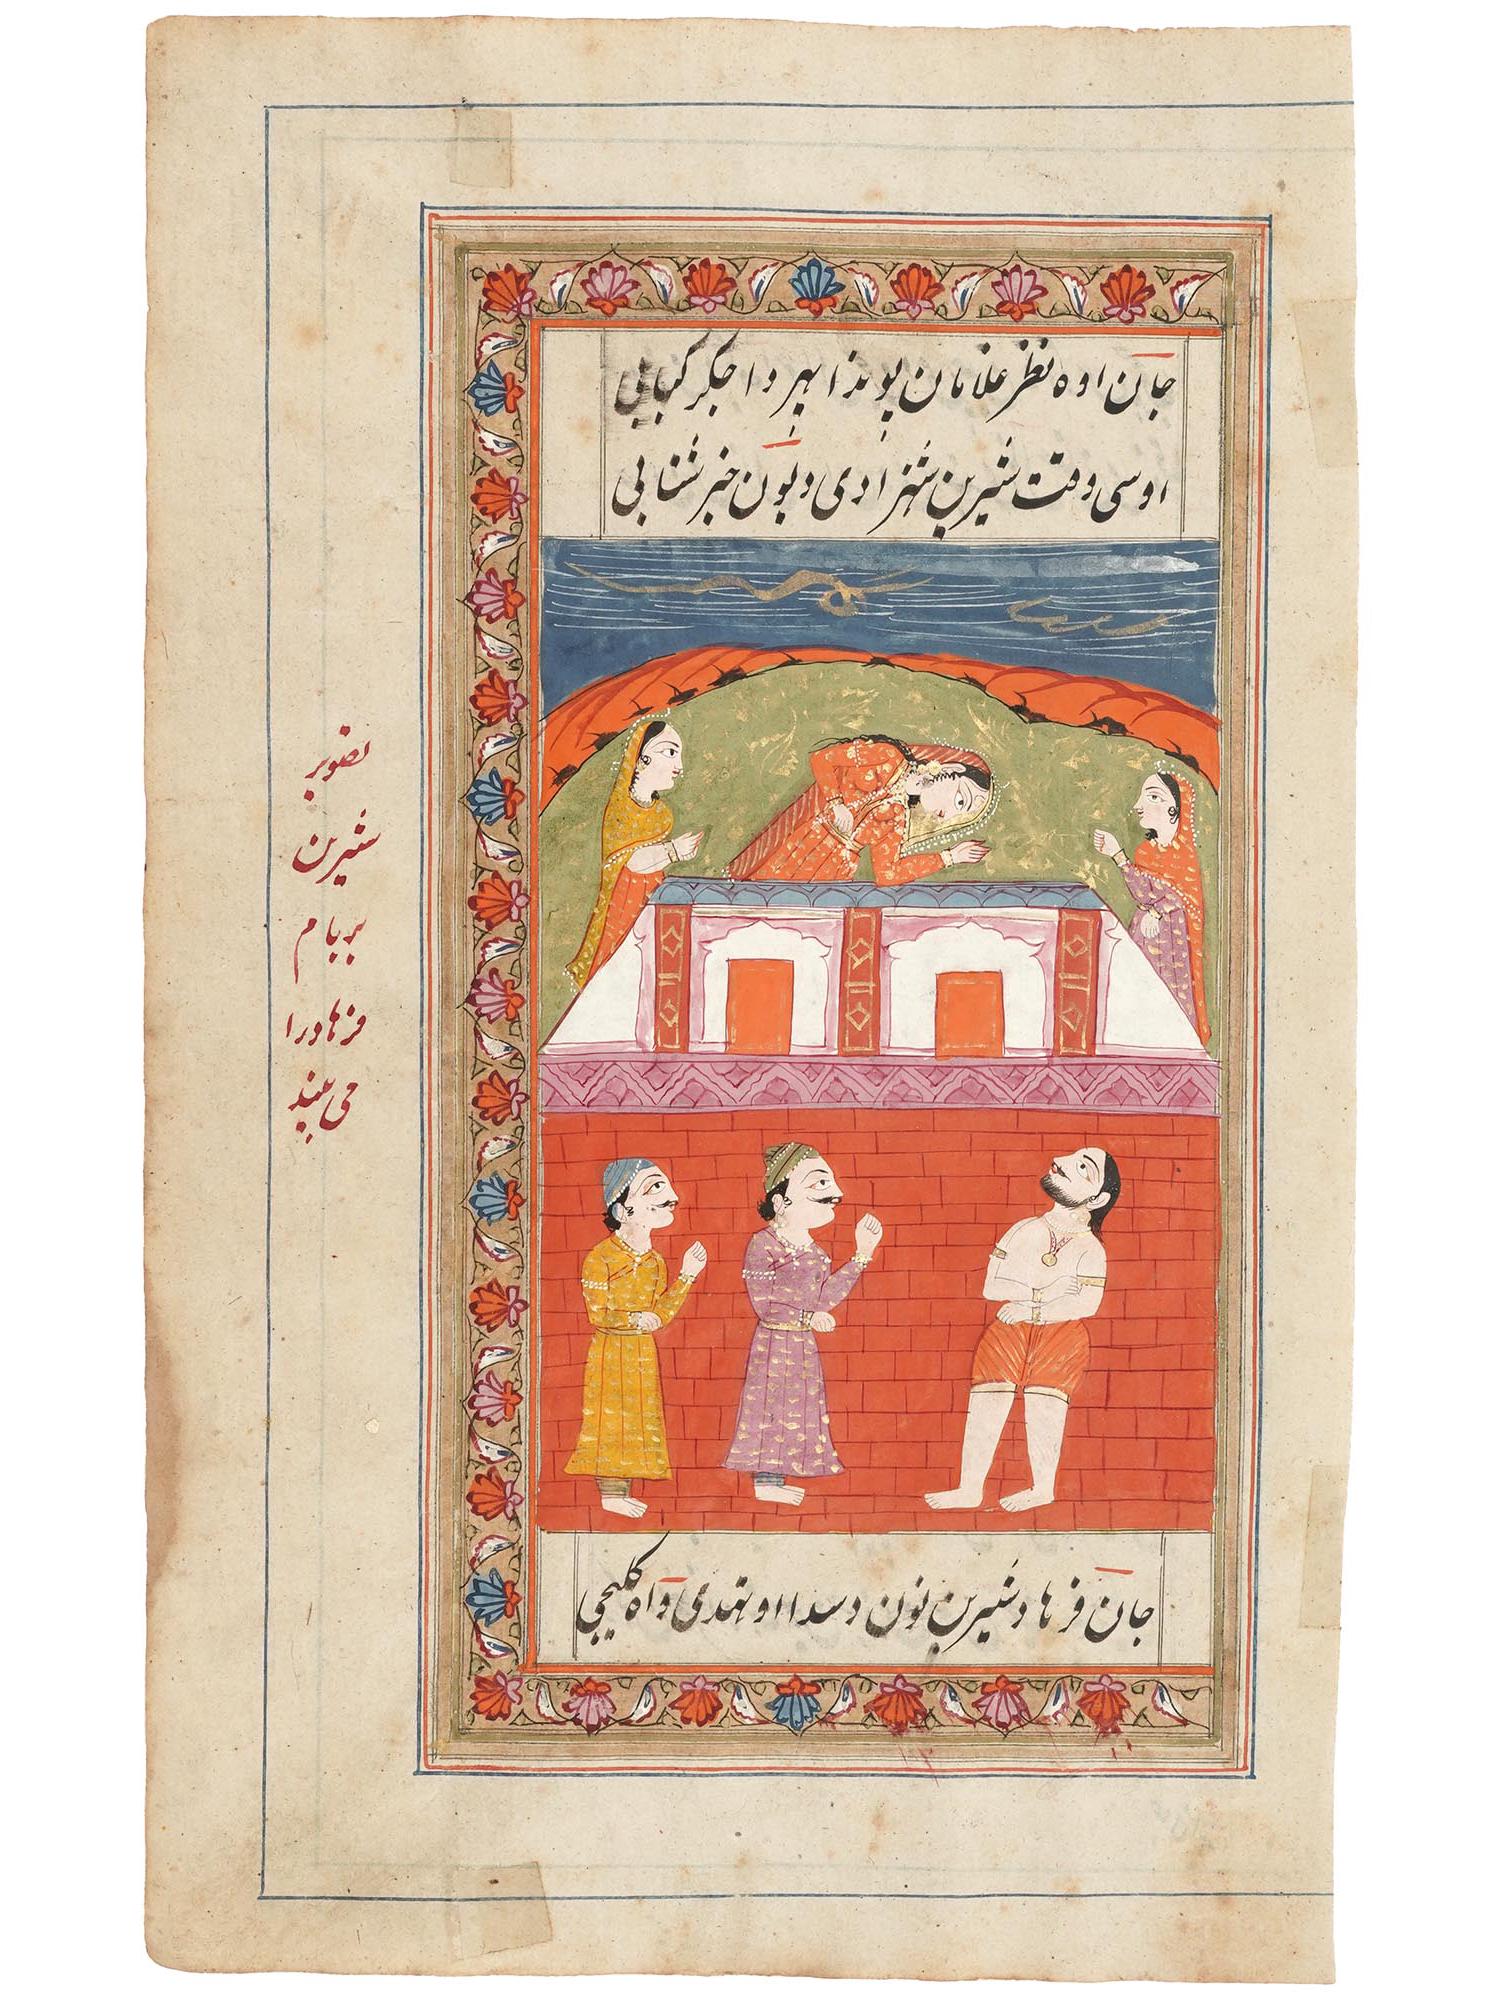 جان اوہ نظر غلامان پوندا ہہر دا جگر کبابی
اوسی وقت شیرین شہزادی دیون خبر شتابی
تصویر
شیرین
بر بام
فرهاد را
می بیند
جان فرہاد شیرین نون دسدا اوٹھدی واہ کلیجی